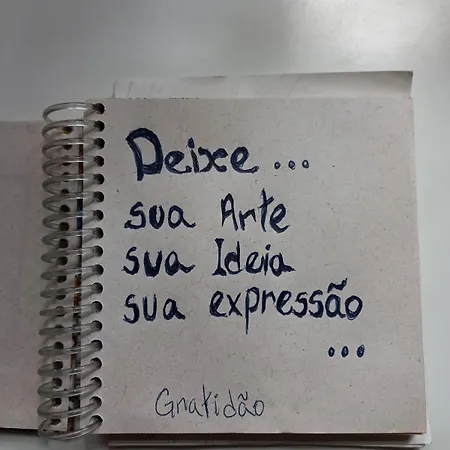 Deixe...
sua Arte
sua Ideia
sua expressão
...
Gratidão